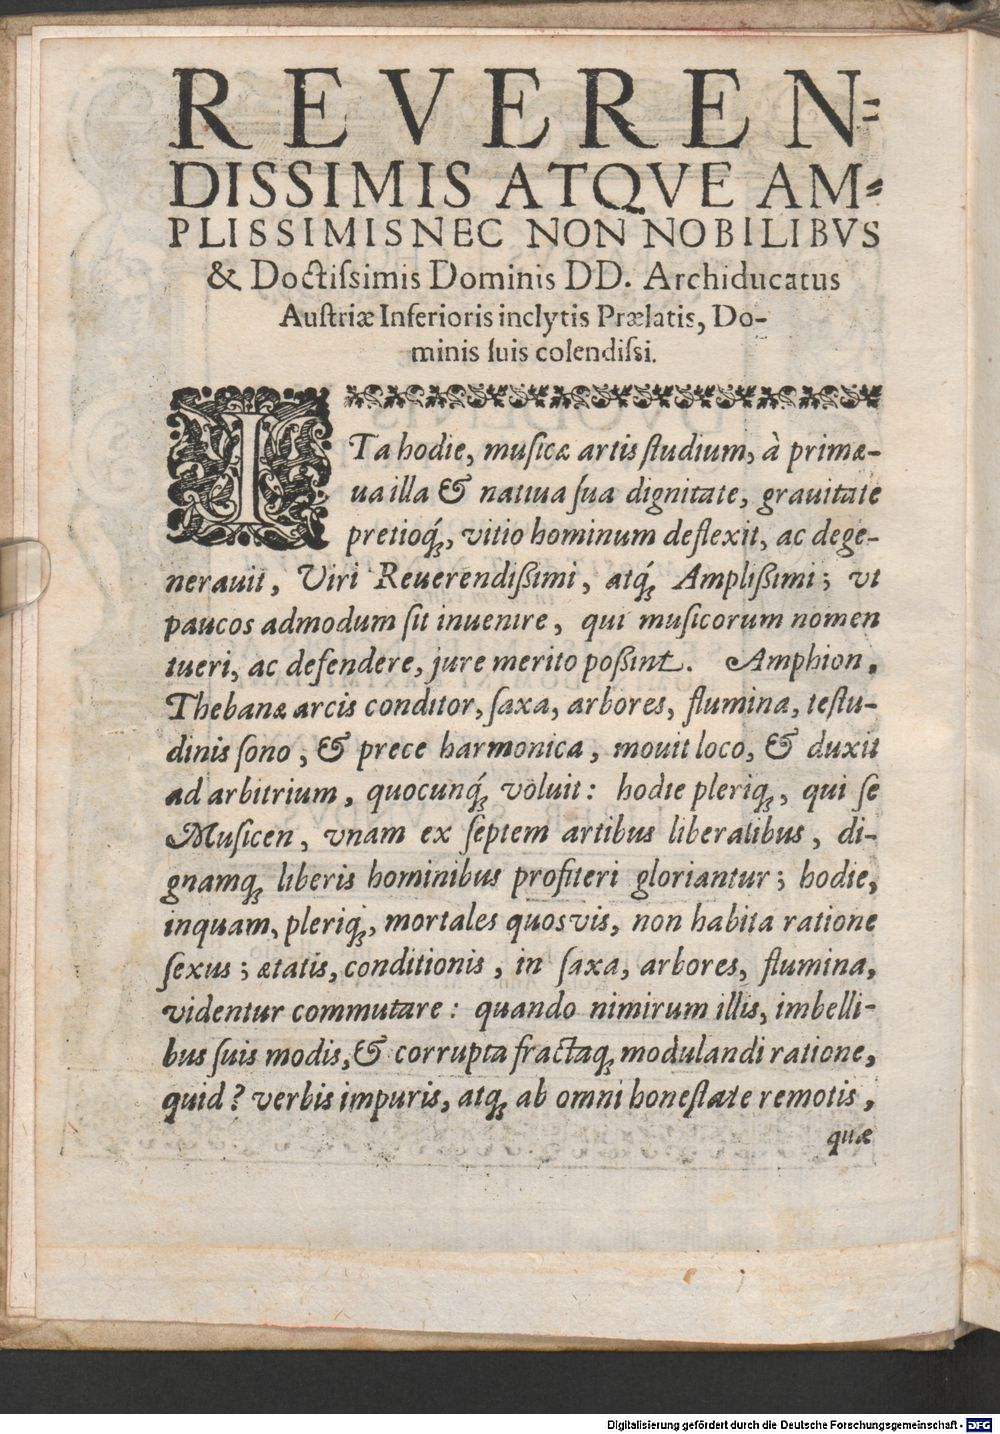 REVEREN=
DISSIMIS ATQVE AM=
PLISSIMIS NEC NON NOBILIBVS
& Doctiſsimis Dominis DD. Archiducatus
Auſtriæ Inferioris inclytis Prælatis, Do-
minis ſuis colendiſsi.
ITa hodie, muſicæ artis ſtudium, à primæ-
ua illa & natiua ſua dignitate, grauitate
pretioq́ꝫ, vitio hominum deflexit, ac dege-
nerauit, Viri Reuerendißimi, atq́ꝫ Amplißimi; vt
paucos admodum ſit inuenire, qui muſicorum nomen
tueri, ac defendere, jure merito poßint. Amphion,
Thebanæ arcis conditor, ſaxa, arbores, flumina, teſtu-
dinis ſono, & prece harmonica, mouit loco, & duxit
ad arbitrium, quocunq́ꝫ voluit: hodie pleriqꝫ, qui ſe
Muſicen, vnam ex ſeptem artibus liberalibus, di-
gnamqꝫ liberis hominibus profiteri gloriantur; hodie,
inquam, pleriqꝫ, mortales quosvis, non habita ratione
ſexus; ætatis, conditionis, in ſaxa, arbores, flumina,
videntur commutare: quando nimirum illis, imbelli-
bus ſuis modis, & corrupta fractaqꝫ modulandi ratione,
quid? verbis impuris, atqꝫ ab omni honeſtate remotis,
quæ
Digitalisierung gefördert durch die Deutsche Forschungsgemeinschaft - DFG